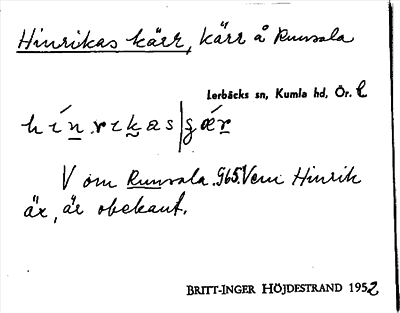 Hinrikas kärr, kärr å Runsala
Lerbäcks sn, Kumla hd, Ör. l
hínrıkas|gǽr
V om Runsala. 965. Vem Hinrik
är, är obekant.
BRITT-INGER HÖJDESTRAND 1952